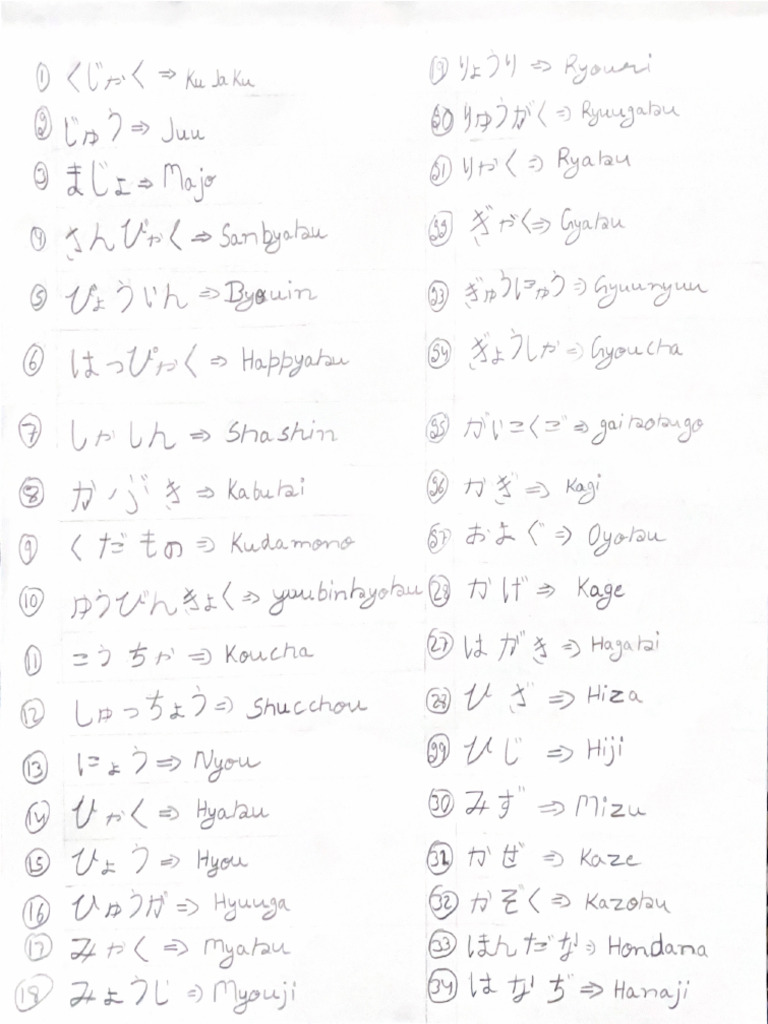 ① くじゃく ⇒ KuJaKu
② じゅう ⇒ Juu
③ まじょ ⇒ Majo
④ さんびゃく ⇒ Sanbyaku
⑤ びょういん ⇒ Byouin
⑥ はっぴゃく ⇒ Happyaku
⑦ しゃしん ⇒ Shashin
⑧ かぶき ⇒ Kabuki
⑨ くだもの ⇒ Kudamono
⑩ ゆうびんきょく ⇒ youbinkyoku
⑪ こうちゃ ⇒ Koucha
⑫ しゅっちょう ⇒ Shucchou
⑬ にょう ⇒ Nyou
⑭ ひゃく ⇒ Hyaku
⑮ ひょう ⇒ Hyou
⑯ ひゅうが ⇒ Hyuuga
⑰ みゃく ⇒ Myaku
⑱ みょうじ ⇒ Myouji
⑲ りょうり ⇒ Ryouri
⑳ りゅうがく ⇒ Ryuugaku
㉑ りゃく ⇒ Ryaku
㉒ ぎゃく ⇒ Gyaku
㉓ ぎゅうにゅう ⇒ Gyuunyuu
㉔ ぎょうしゃ ⇒ Gyoucha
㉕ がいこくご ⇒ gaikokugo
㉖ かぎ ⇒ Kagi
㉗ およぐ ⇒ Oyoku
㉘ かげ ⇒ Kage
㉗ はがき ⇒ Hagaki
㉘ ひざ ⇒ Hiza
㉙ ひじ ⇒ Hiji
㉚ みず ⇒ Mizu
㉛ かぜ ⇒ Kaze
㉜ かぞく ⇒ Kazoku
㉝ ほんだな ⇒ Hondana
㉞ はなぢ ⇒ Hanaji